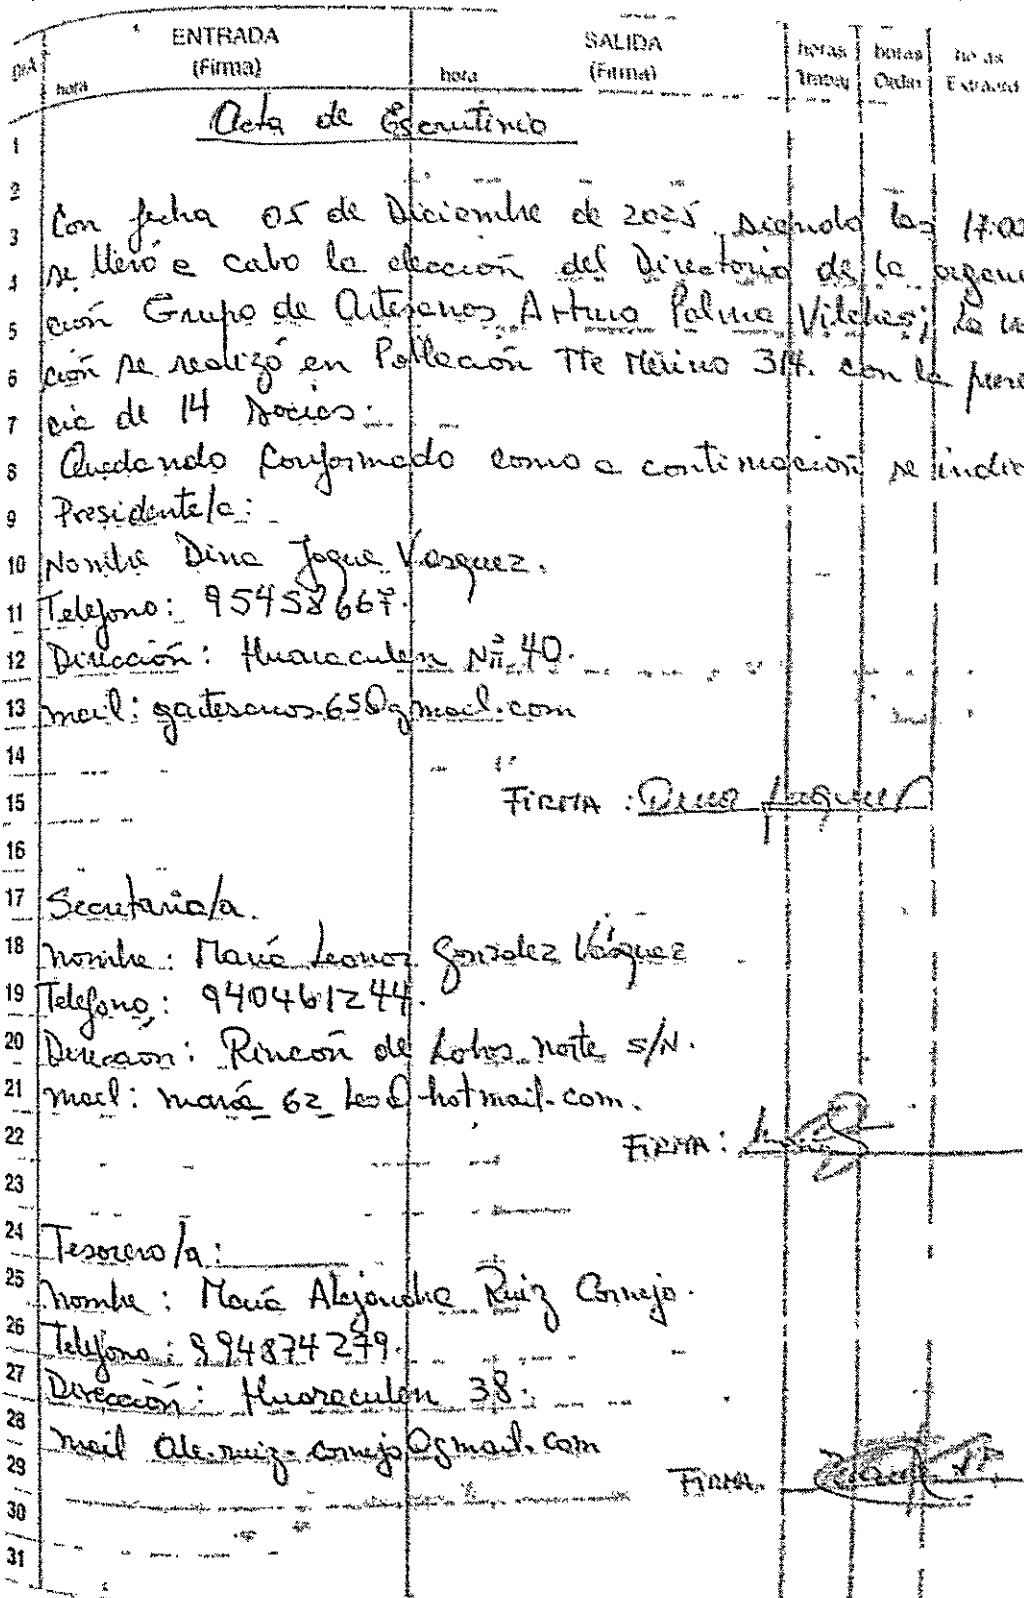 DIA ENTRADA (Firma) hora SALIDA (Firma) hora horas Trabaj horas Ordin horas Extraord
Acta de Escrutinio
Con fecha 05 de Diciembre de 2025, siendo las 17:00
se llevó a cabo la elección del Directorio de la organi
ción Grupo de Artesanos Arturo Palma Vilches; la vo
ción se realizó en Población Tte Merino 314. con la presen
cia de 14 socios.
Quedando conformado como a continuación se indic
Presidente/a:
Nombre Dina Jaque Vasquez.
Telefono: 95458667.
Dirección: Huaraculen Nº 40.
mail: gartesanos.65@gmail.com
FIRMA: Dina Jaque V
Secretaria/a.
nombre: María Leonor Gonzalez Vásquez
Telefono: 940461244.
Dirección: Rincón de Lobos norte S/N.
mail: maria 62 leo@hotmail.com.
FIRMA:
Tesorero/a:
nombre: María Alejandra Ruiz Cornejo.
Telefono: 994874279.
Dirección: Huaraculen 38.
mail ale.ruiz.cornejo@gmail.com
FIRMA.
1
2
3
4
5
6
7
8
9
10
11
12
13
14
15
16
17
18
19
20
21
22
23
24
25
26
27
28
29
30
31